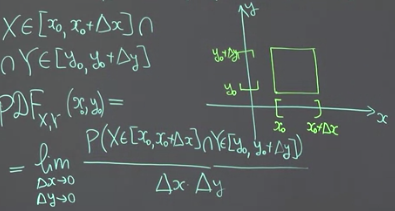 X∈[x₀, x₀+Δx]∩
∩Y∈[y₀, y₀+Δy]
PDF_{X,Y}(x₀,y₀)=
= lim_{Δx→0, Δy→0} P(X∈[x₀,x₀+Δx]∩Y∈[y₀,y₀+Δy]) / Δx·Δy
y
y₀+Δy
y₀
x₀
x₀+Δx
x